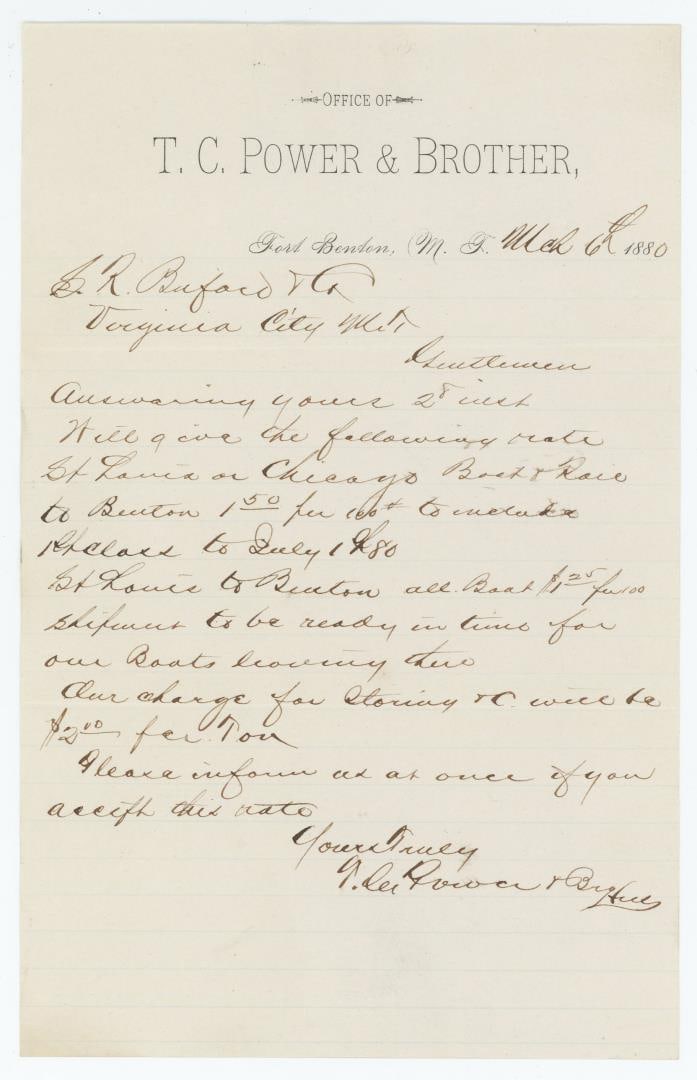 OFFICE OF
T. C. POWER & BROTHER,
Fort Benton, M. T. Mch 6th 1880
S. R. Buford & Co
Virginia City M.T.
Gentlemen
Answaring yours 2d inst
Will give the following rate
St Louis or Chicago Boat & Rale
to Benton 1 50 per 100# to include
1st class to July 1st 80
St Louis to Benton all Boat $1 25 per 100
shipment to be ready in time for
our Boats leaving there
Our charge for Storing &C. will be
$2 00 per. Ton
Please inform us at once if you
accept this rate
Yours Truly
T. C. Power & Bro